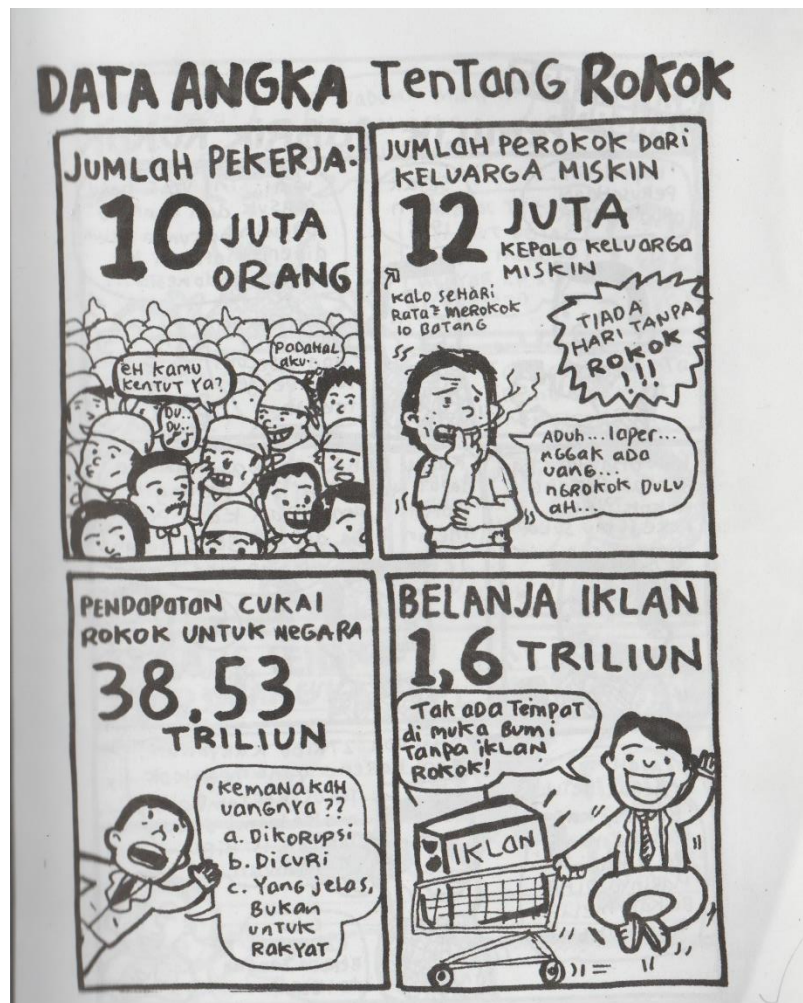 DATA ANGKA TenTanG RoKoK
JUMLaH PEKERJA:
10 JUTA
ORANG
eH KAMU
KenTUT Ya?
PADAHAL
aKU..
DU..
DU..
JUMLaH PeROKOK DaRi
KELUARGA MISKIN
12 JUTA
KEPALA KELUARGA
MISKIN
KaLO SeHARi
RaTa² MeROKOK
10 BaTANG
TIADA
HARI TANPA
ROKOK
!!!
ADUH...laper...
nGGaK aDa
UanG...
nGROKOK DULU
aH...
PENDAPATAN CUKAI
ROKOK UNTUK NeGARA
38.53
TRILIUN
•KemanaKaH
UanGnYa ??
a. DiKoRUPSi
b. DiCURi
c. Yang jeLas,
BUKan
UnTUK
RaKYaT
BELANJA IKLAN
1,6 TRILIUN
TaK aDa TemPaT
di muKa Bumi
TanPa iKLan
RoKoK!
IKLAN